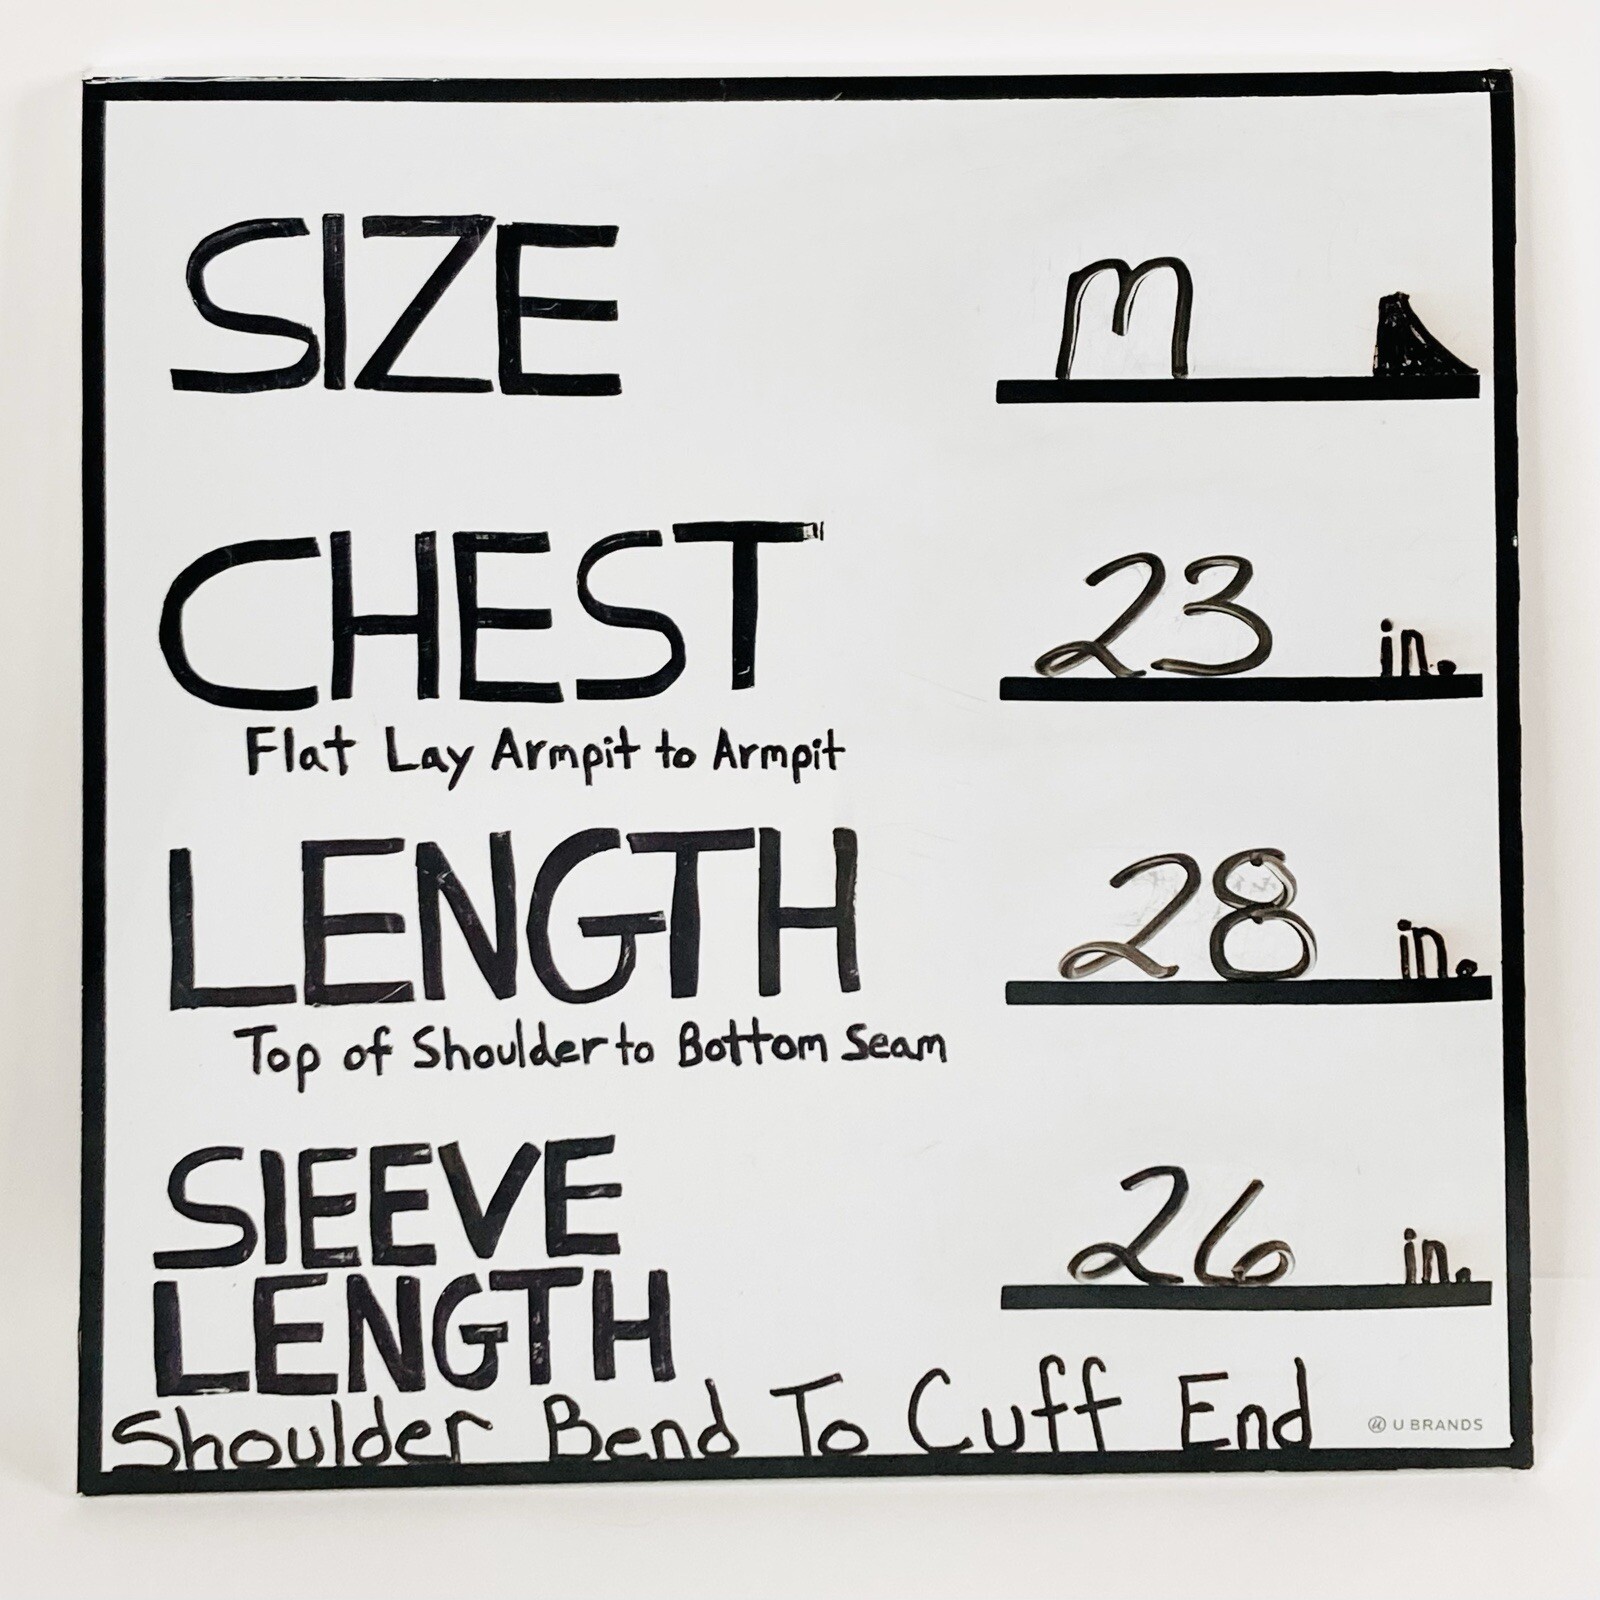 SIZE m
CHEST 23 in.
Flat Lay Armpit to Armpit
LENGTH 28 in.
Top of Shoulder to Bottom Seam
SlEEVE
LENGTH 26 in.
Shoulder Bend To Cuff End
U BRANDS